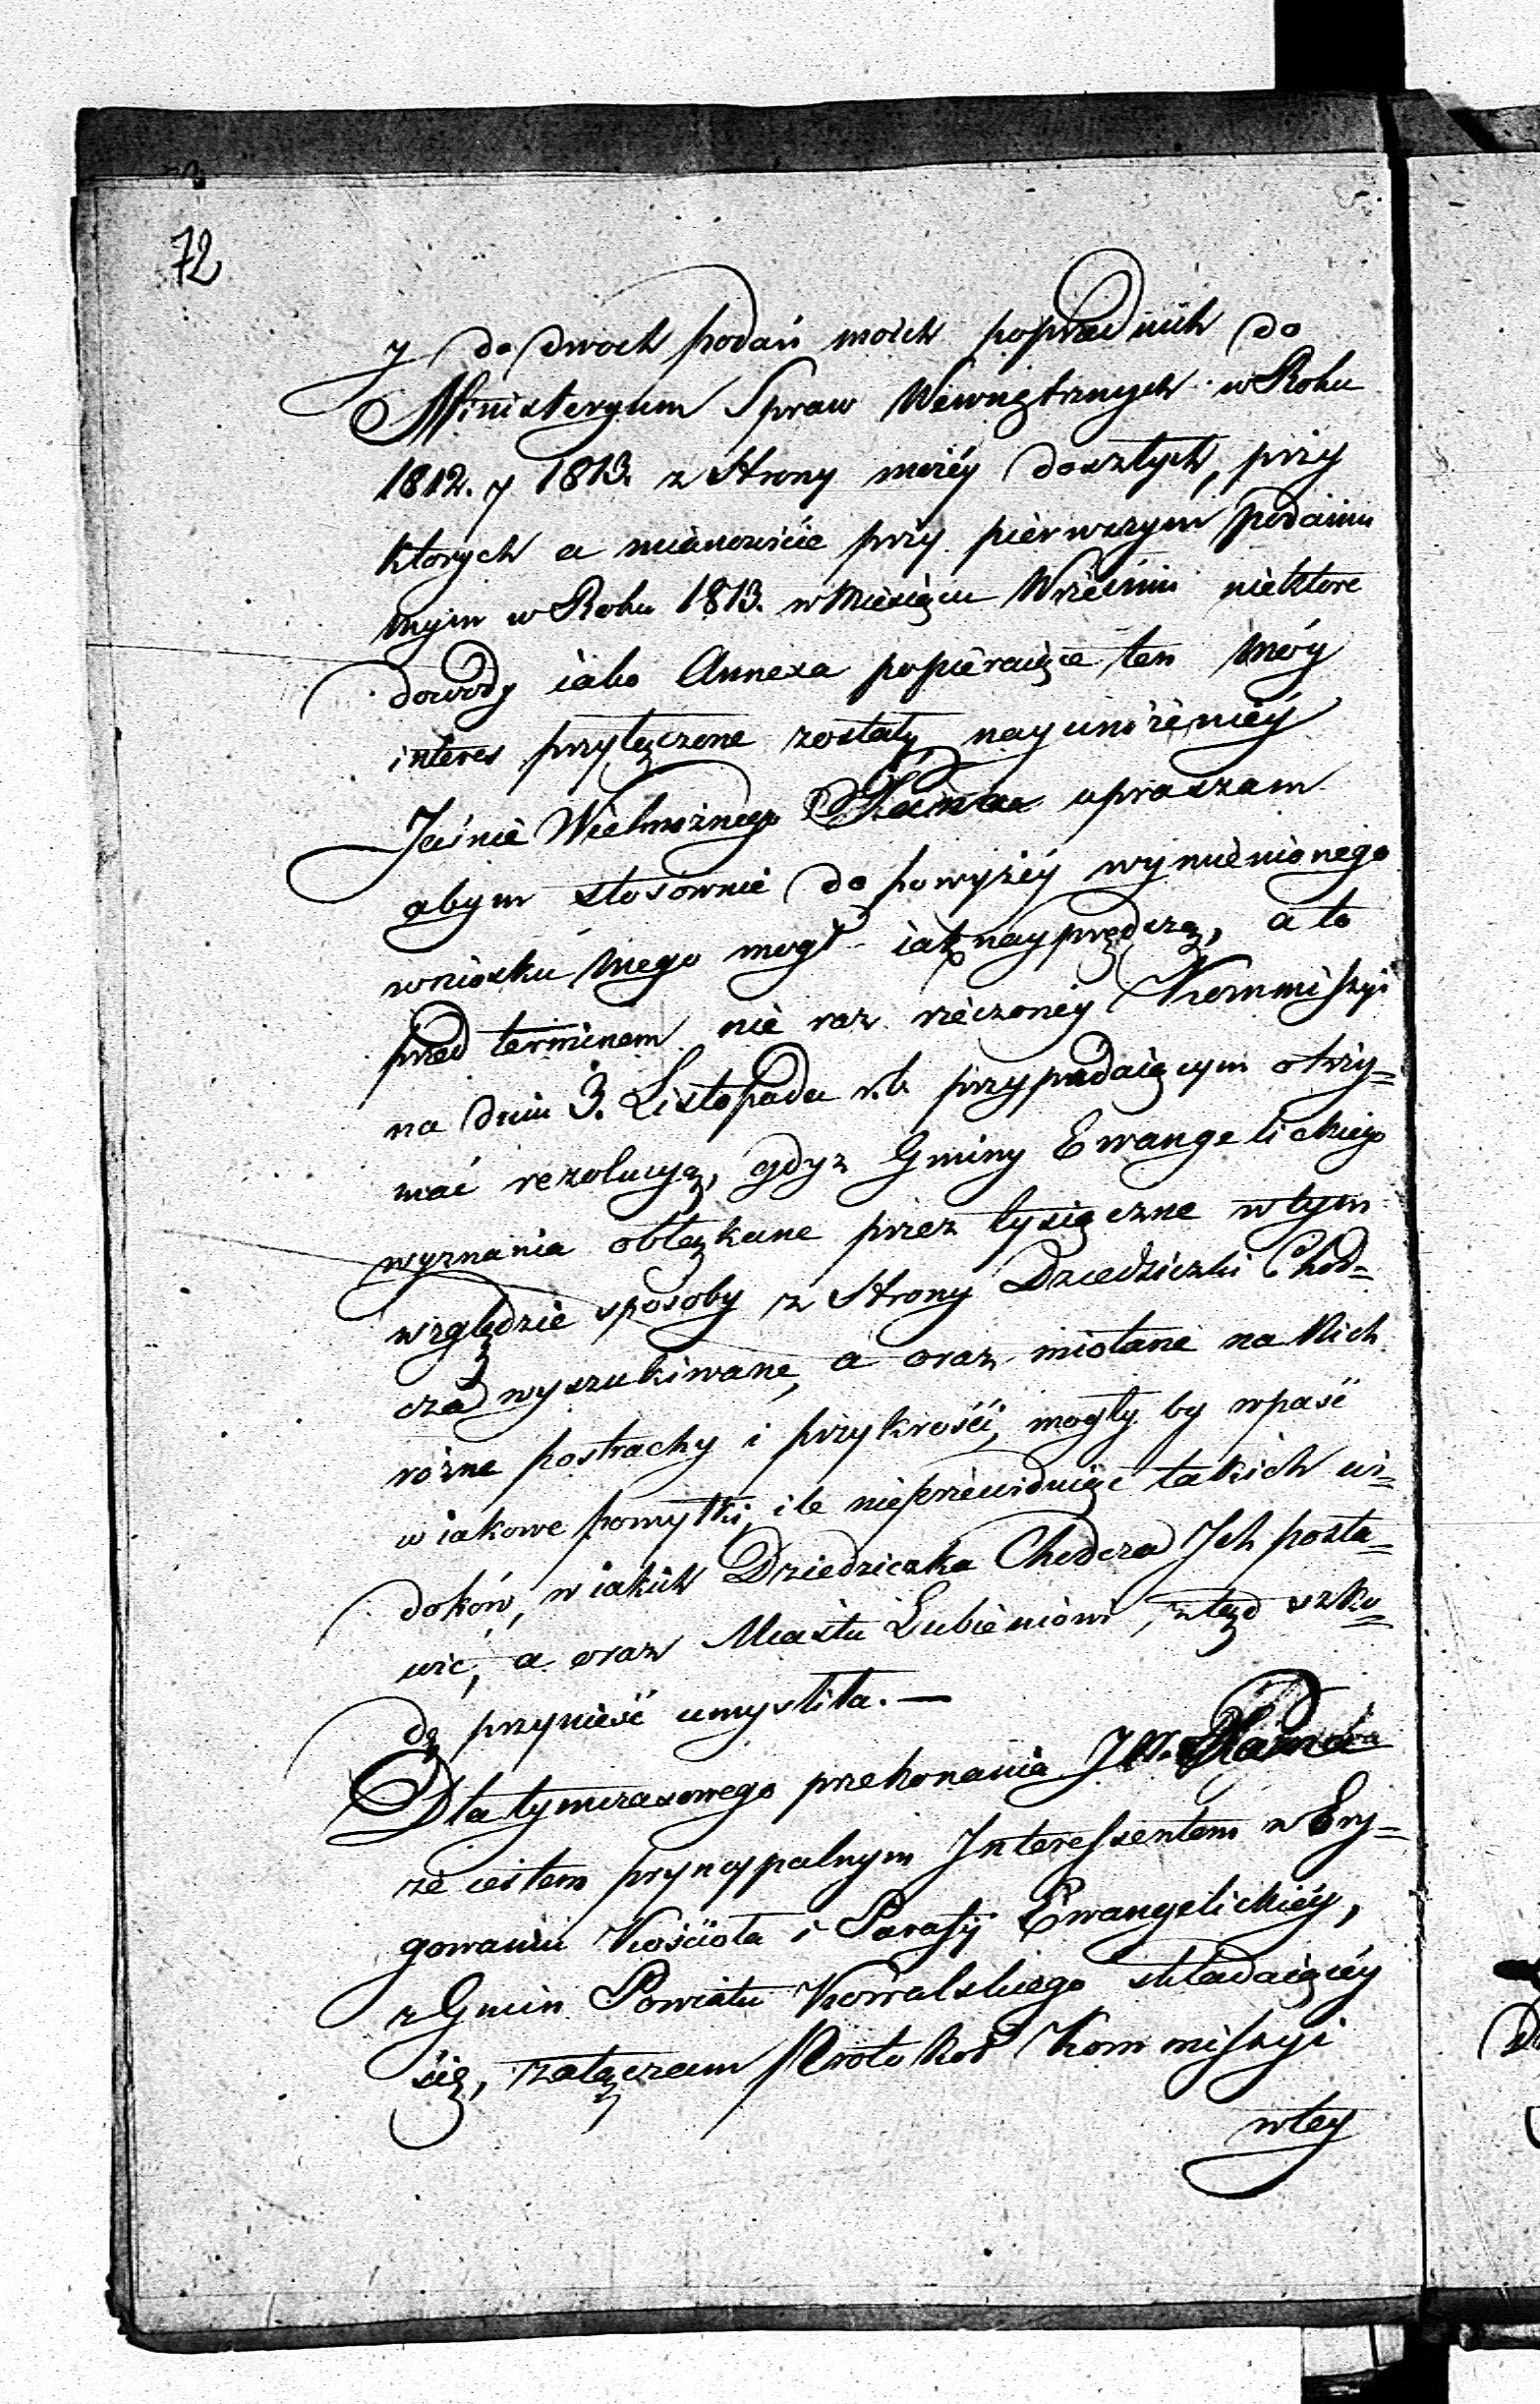 72
y do dwoch podań moich poprzednich do
Ministeryum Spraw Wewnętrznych w Roku
1812. y 1813. z Strony moiéy doszłych, przy
ktorych a mianowicie przy pierwszym podaniu
mym w Roku 1813. w Miesiącu Wrześniu niektore
dowody iako Annexa popieraiące ten móy
interes przyłączone zostały nayuniżeniéy
Jaśnie Wielmożnego Pana upraszam
abym stosownie do powyżéy wymienionego
wniosku mego mogł iak nayprędzéy, a to
przed terminem nie raz rzeczonéy Kommissyi
na dniu 3. Listopada r.b. przypadaiącym otrzy=
mać rezolucyą, gdyż Gminy Ewangelickiego
wyznania obłąkane przez tysiączne w tym
względzie sposoby z Strony Dziedziczki Chod=
cza wyszukiwane, a oraz miotane na Nich
rożne postrachy i przykrości, mogły by wpaść
w iakowe pomyłki, ile nieprzewiduiąc takich wi=
doków, w iakich Dziedziczka Chodcza Jch posta=
wić, a oraz Miastu Lubieniowi, ztąd szko=
dę przynieść umyśliła. —
Dla tymczasowego przekonania JW. Pana
że iestem pryncypalnym Interessentem w Ery=
gowaniu Kościoła i Parafij Ewangelickiéy,
z Gmin Powiatu Kowalskiego składaiącéy
się, załączam Protokoł Kommissyi
w tey